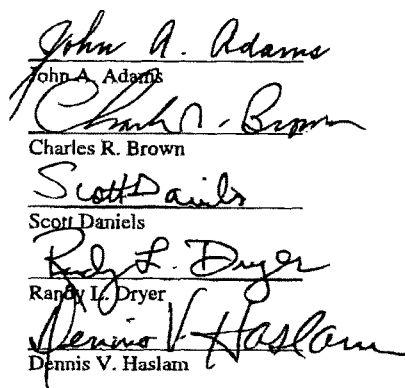 John A. Adams
John A. Adams
Charles R. Brown
Charles R. Brown
Scott Daniels
Scott Daniels
Randy L. Dryer
Randy L. Dryer
Dennis V. Haslam
Dennis V. Haslam